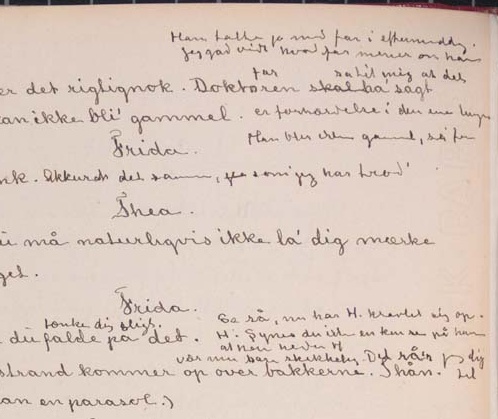 Han talte jo med far i eftermiddag.
Jeg gad vidst hvad far mener om ham
far sa' til mig at det
er det rigtignok. Doktoren skal ha' sagt
kan ikke bli' gammel. er forhærdelse i den ene lunge
Han blir ikke gammel, sa' far
Frida.
nk. Akkurat det samme, som jeg har trod'
Thea.
u må naturligvis ikke la' dig mærke
get.
Frida.
tænke dig sligt. Se så, nu har H. krøvlet sig op.
du faldt på det. H. Synes du ikke en kan se på ham
at han heder H
var min bare skikkelse. Det rå'r jeg dig til
strand kommer op over bakkerne. I hån.
an en parasol.)